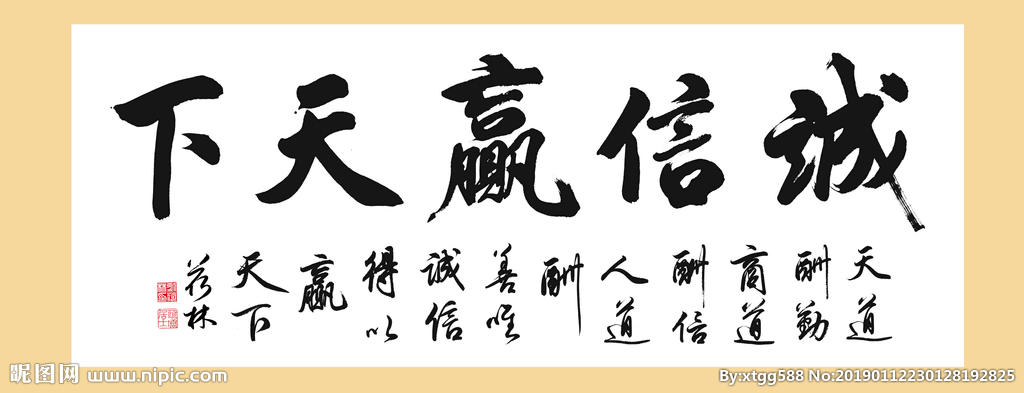 誠信贏天下
天道
酬勤
商道
酬信
人道
酬
善唯
誠信
得以
贏
天下
昵图网 www.nipic.com
By:xtgg588 No:20190112230128192825